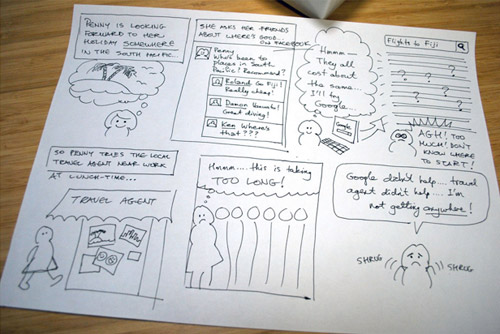 PENNY IS LOOKING
FORWARD TO HER
HOLIDAY SOMEWHERE
IN THE SOUTH PACIFIC.
SHE ASKS HER FRIENDS
ABOUT WHERE'S GOOD...
ON FACEBOOK
Penny
Who's been to
places in South
Pacific? Recommend?
Roland Go Fiji!
Really cheap!
Damon Vanuatu!
Great diving!
Ken Where's
that???
Hmmm—
They all
cost about
the same...
I'll try
Google...
Google
Flights to Fiji
?
?
?
?
?
AGH! TOO
MUCH! DON'T
KNOW WHERE
TO START!
SO PENNY TRIES THE LOCAL
TRAVEL AGENT NEAR WORK
AT LUNCH-TIME...
TRAVEL AGENT
Hmmm....this is taking
TOO LONG!
Google didn't help... travel
agent didn't help... I'm
not getting anywhere!
SHRUG
SHRUG